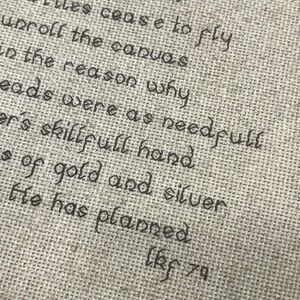 cease to fly
unroll the canvas
the reason why
were as needfull
skillfull hand
of gold and silver
He has planned
lkf 79